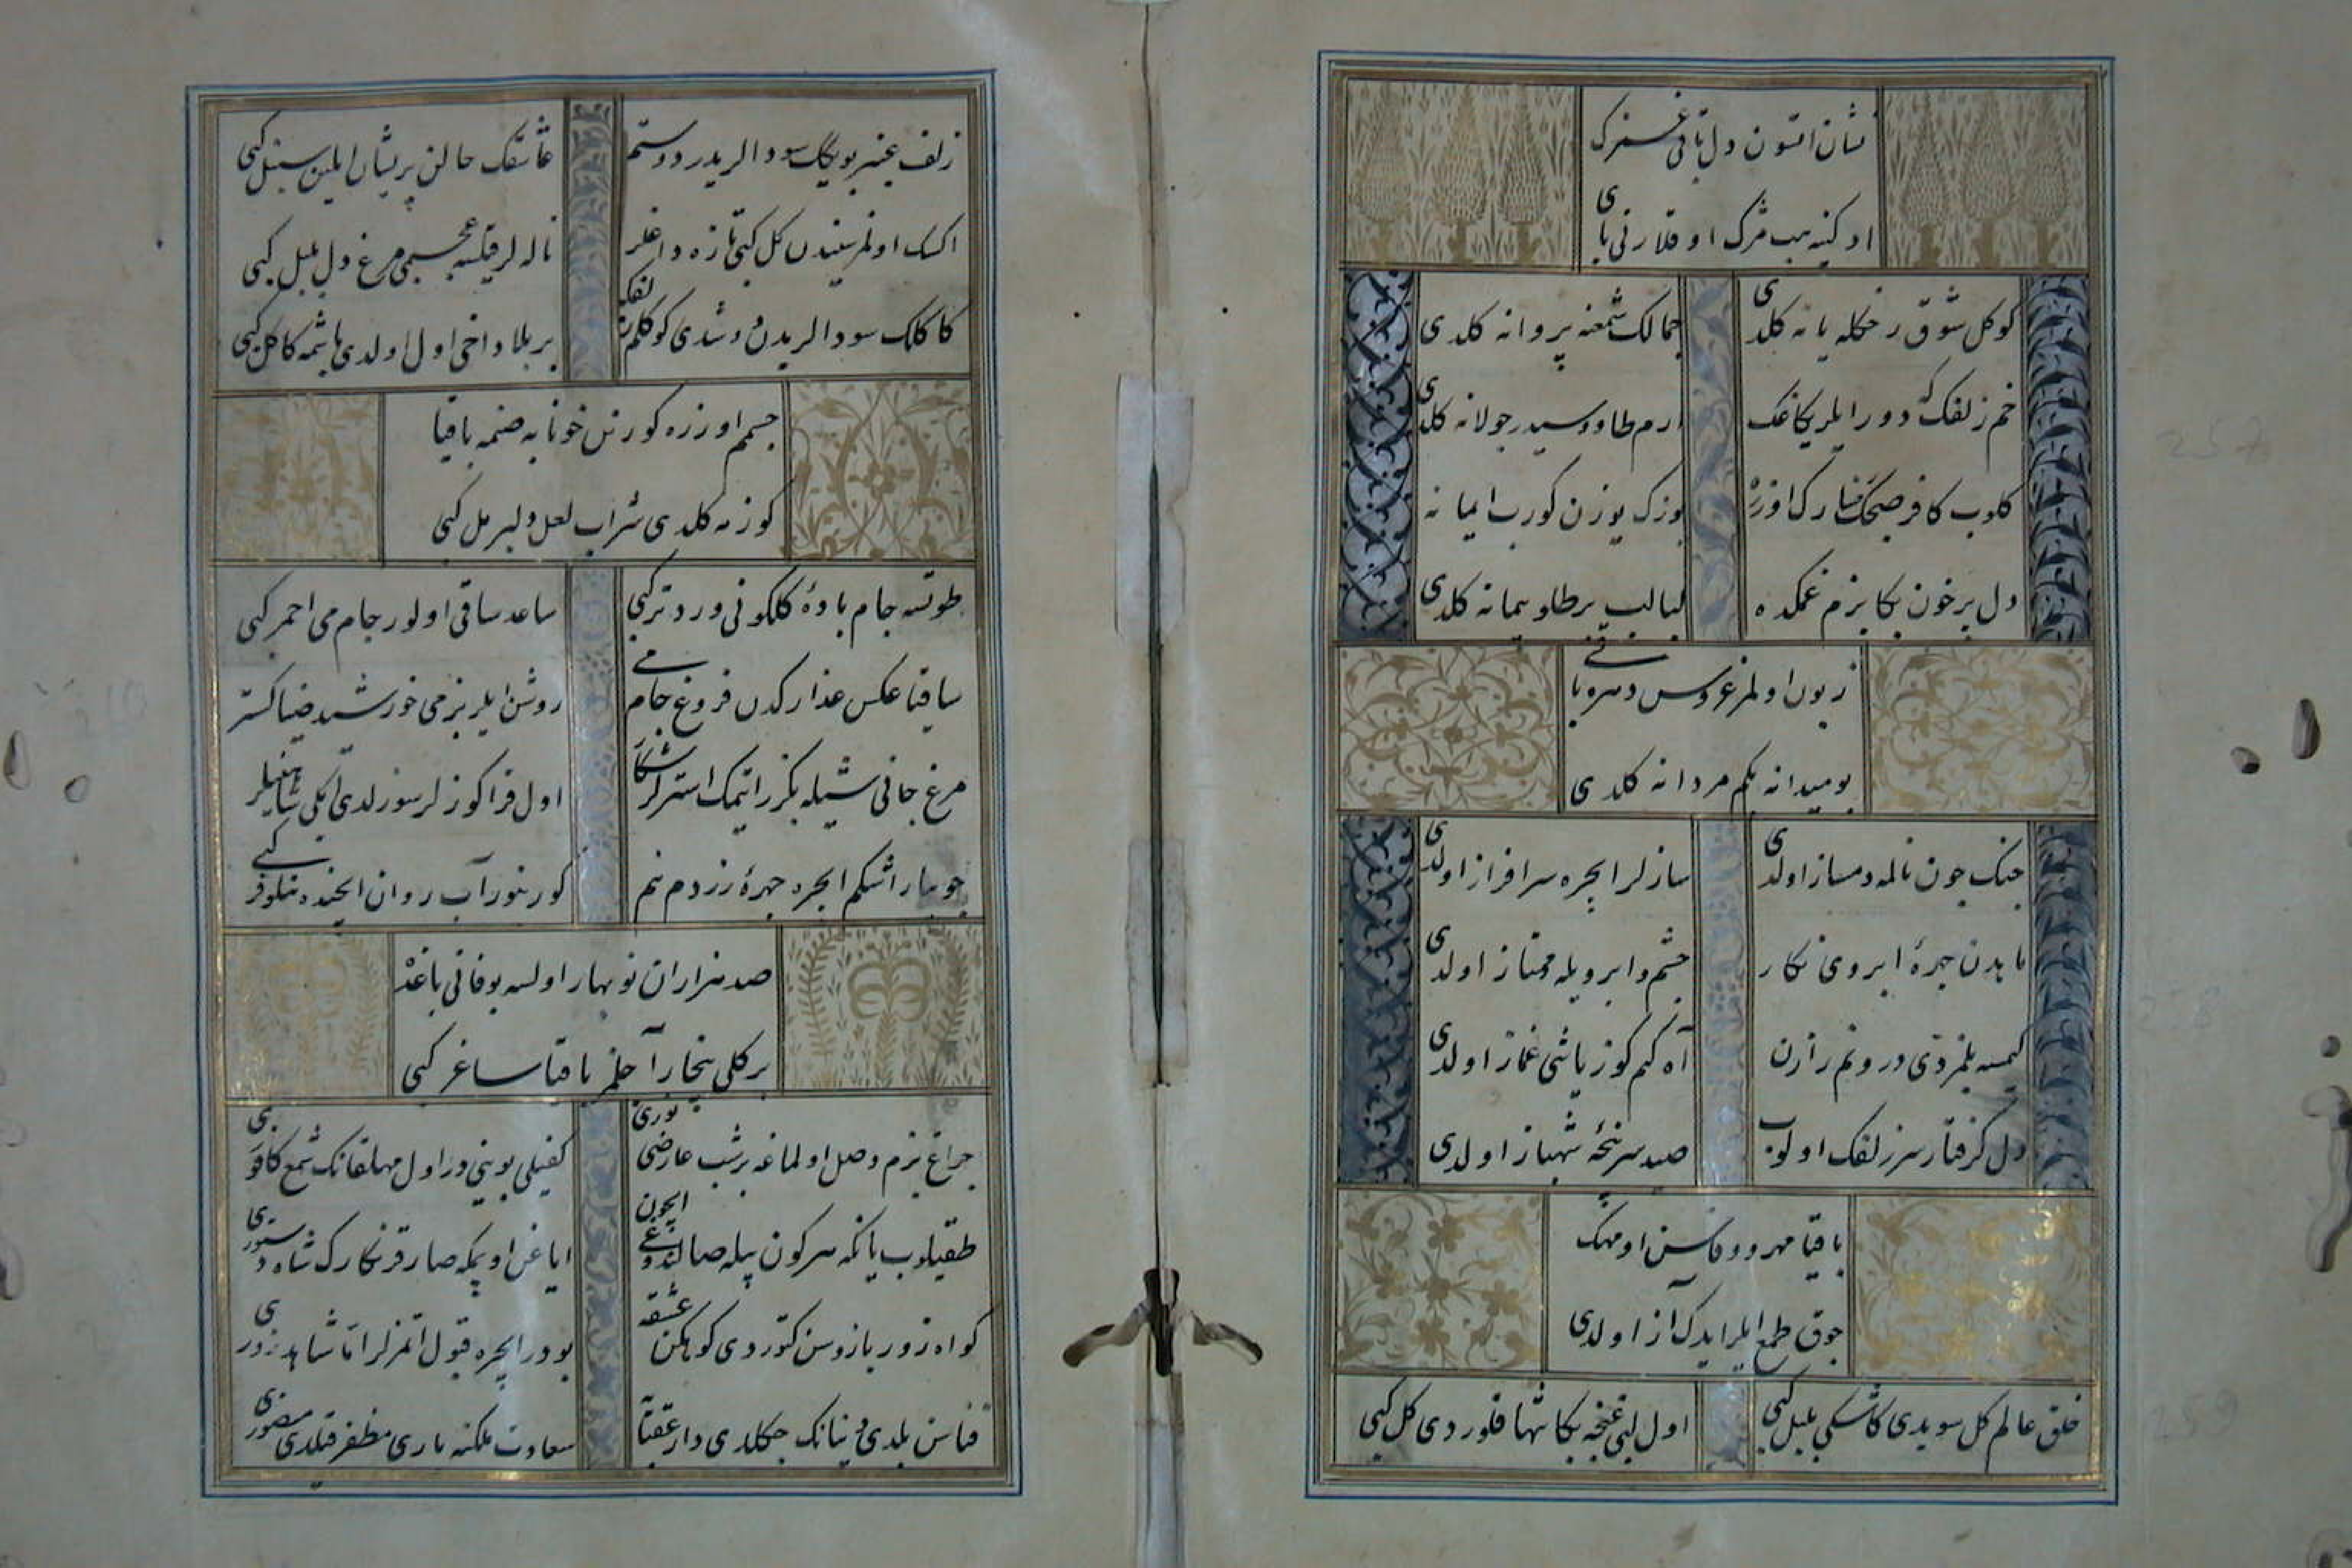 نشان اتسون دل باقی غمزه‌ک
اوکینه هب مژک اوقلارنی بای
کوکل شوق رخکله یانه کلدی
جمالک شمعنه پروانه کلدی
خم زلفک که دور ایلر یکاغک
ارم طاووسیدر جولانه کلدی
کلوب کافر صجک رخسارک اوزره
یوزک یوزن کورب ایمانه کلدی
دل پر خون بکا بزم غمکده
لبالب بر طلو پیمانه کلدی
زبون اولمز عروس دهره باقی
بو میدانه بکم مردانه کلدی
جنک جون نالمه دمساز اولدی
سازلر ایچره سرافراز اولدی
ماه بدن جهرهٔ ابروی نکار
جشم و ابرویله ممتاز اولدی
کیمسه بلمزدی درونم رازن
آه کم کوز یاشی غماز اولدی
دل گرفتار سر زلفک اولوب
صید سرپنجهٔ شهباز اولدی
باقیا مهر و وفاسن او مهک
جوق طمع ایلر ایدک آز اولدی
خلق عالم کل سویدی کاشکی بلبل کبی
اول لبی غنجه بکا تنها قلوردی کل کبی
زلف عنبر بویکله سودالریدر دوستم
عاشقک حالن پریشان ایلین سنبل کبی
اکسک اولمز سینه‌دن کل کبی تازه داغلر
ناله لر قیلسه عجبمی مرغ دل بلبل کبی
کاکلک سودالریدن دوشدی کوکلم زلفکه
بر بلا داخی اول اولدی باشمه کاکل کبی
جسمم اوزره کورنن خونابه صنمه باقیا
کوزمه کلدی شراب لعل دلبر مل کبی
طوتسه جام بادهٔ کلکونی ورد تر کبی
ساعد ساقی اولور جام می احمر کبی
ساقیا عکس عذارکدن فروغ جام می
روشن ایلر بزمی خورشید ضیا کستر کبی
مرغ جانی سیله بکزر ایتمک استرلر شکار
اول قرا کوزلر سوزلدی ایکی شاهینلر کبی
جویبار اشکم ایچره جهرهٔ زردم بنم
کورینور آب روان ایچنده نیلوفر کبی
صد هزاران نوبهار اولسه بو فانی باغده
بر کلی بیخار آجلمز باقیا ساغر کبی
جراغ بزم وصل اولماغه بر شب عارضی نوری
کفیلی بوینی در اول مهلقانک شمع کافوری
طقیلوب یانکه سرکون بیله صالندوغی ایچون
ایاغن اوپمکه صارقر نکارک شاه دستوری
کواه زور بازوسن کتوردی کوهکن عشقه
بودر ایچره قبول اتمزلر اما شاهد زوری
فناسن بلدی دنیانک جکلدی دار عقبایه
سعادت ملکنه باری مظفر قیلدی منصوری